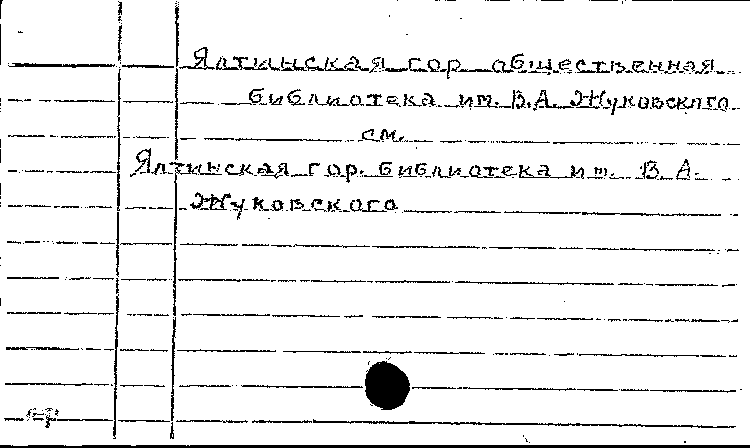 Ялтинская гор общественная
библиотека им. В.А. Жуковского
см.
Ялтинская гор. библиотека им. В. А.
Жуковского